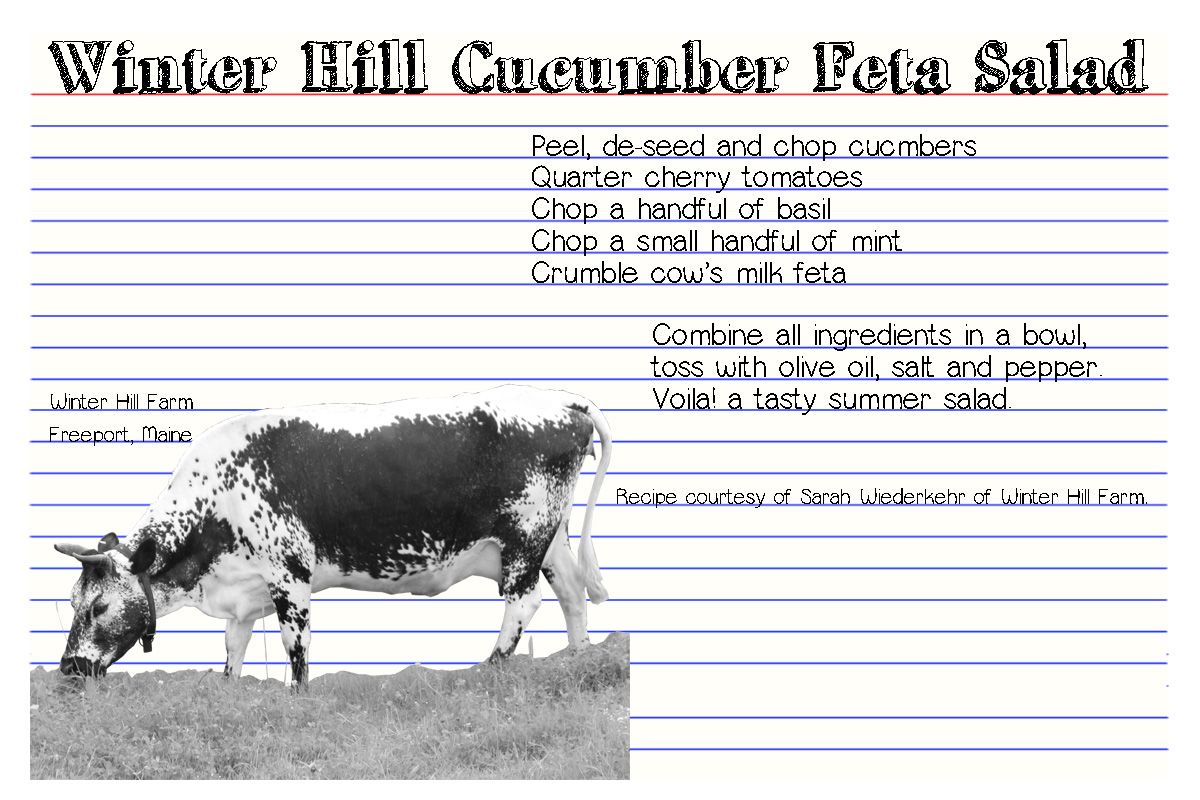 Winter Hill Cucumber Feta Salad
Peel, de-seed and chop cucmbers
Quarter cherry tomatoes
Chop a handful of basil
Chop a small handful of mint
Crumble cow's milk feta
Combine all ingredients in a bowl,
toss with olive oil, salt and pepper.
Voila! a tasty summer salad.
Winter Hill Farm
Freeport, Maine
Recipe courtesy of Sarah Wiederkehr of Winter Hill Farm.